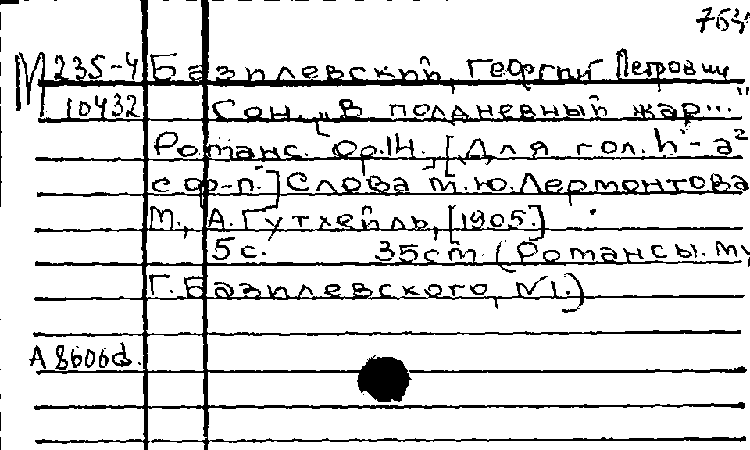 763
М 235-4 Базилевский, Георгий Петрович
10432 Сон. [„В полдневный жар..."
Романс. Ор. 14. [Для гол. h - a²
с ф-п.] Слова М.Ю. Лермонтова
М., А. Гутхейль, [1905.]
5 с. 35 см. (Романсы. Му
Г. Базилевского, №1.)
А 8606